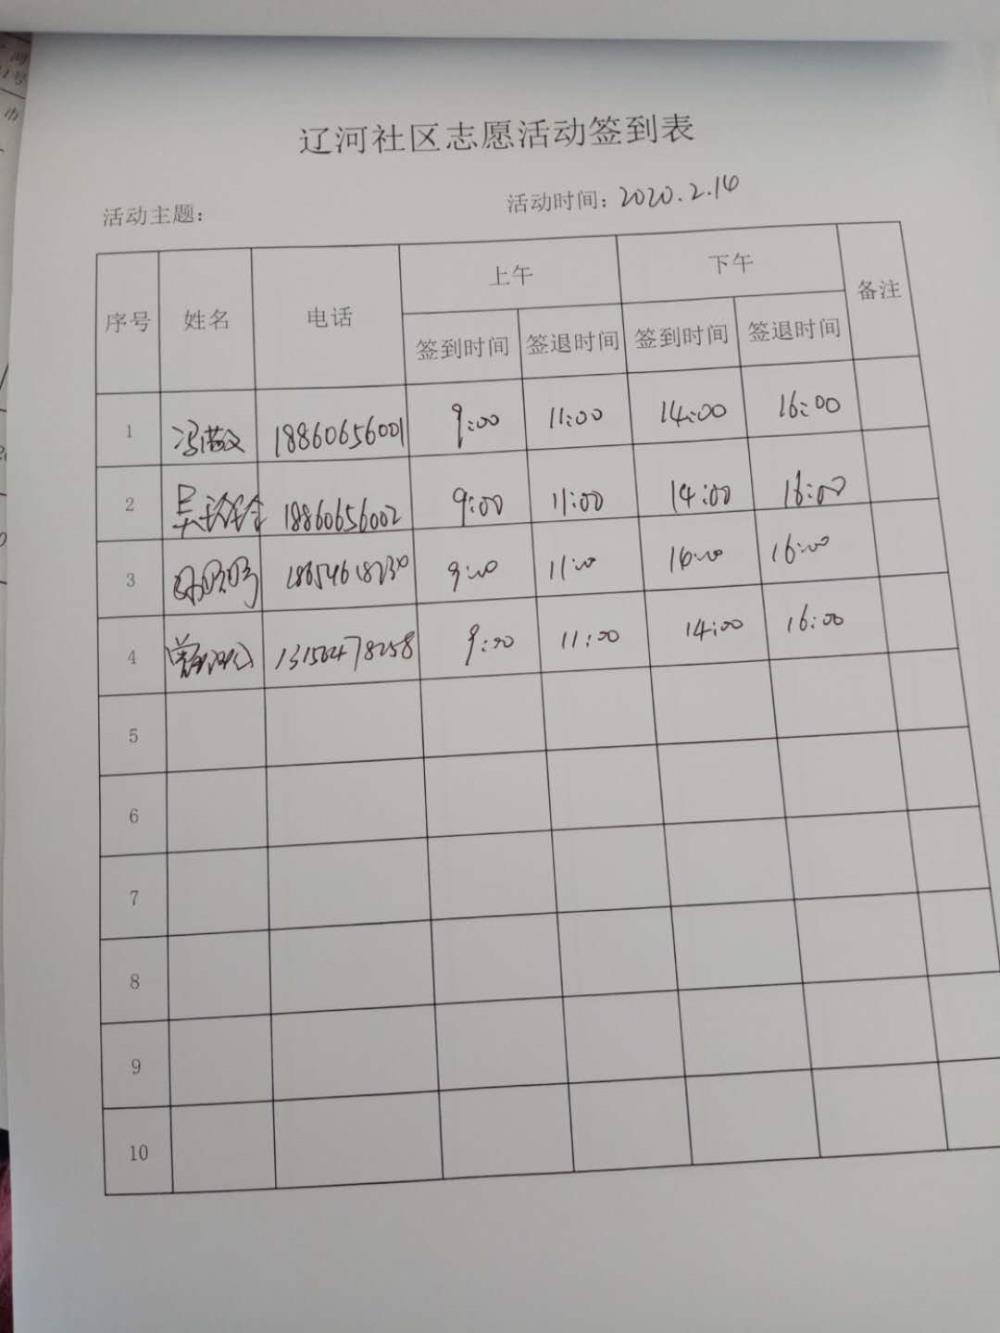 辽河社区志愿活动签到表
活动主题： 活动时间：2020.2.14
序号 姓名 电话 上午 下午 备注
签到时间 签退时间 签到时间 签退时间
1 冯 18860656001 9:00 11:00 14:00 16:00
2 吴 18860656002 9:00 11:00 14:00 16:00
3 9:00 11:00 16:00
4 9:00 11:00 14:00 16:00
5
6
7
8
9
10